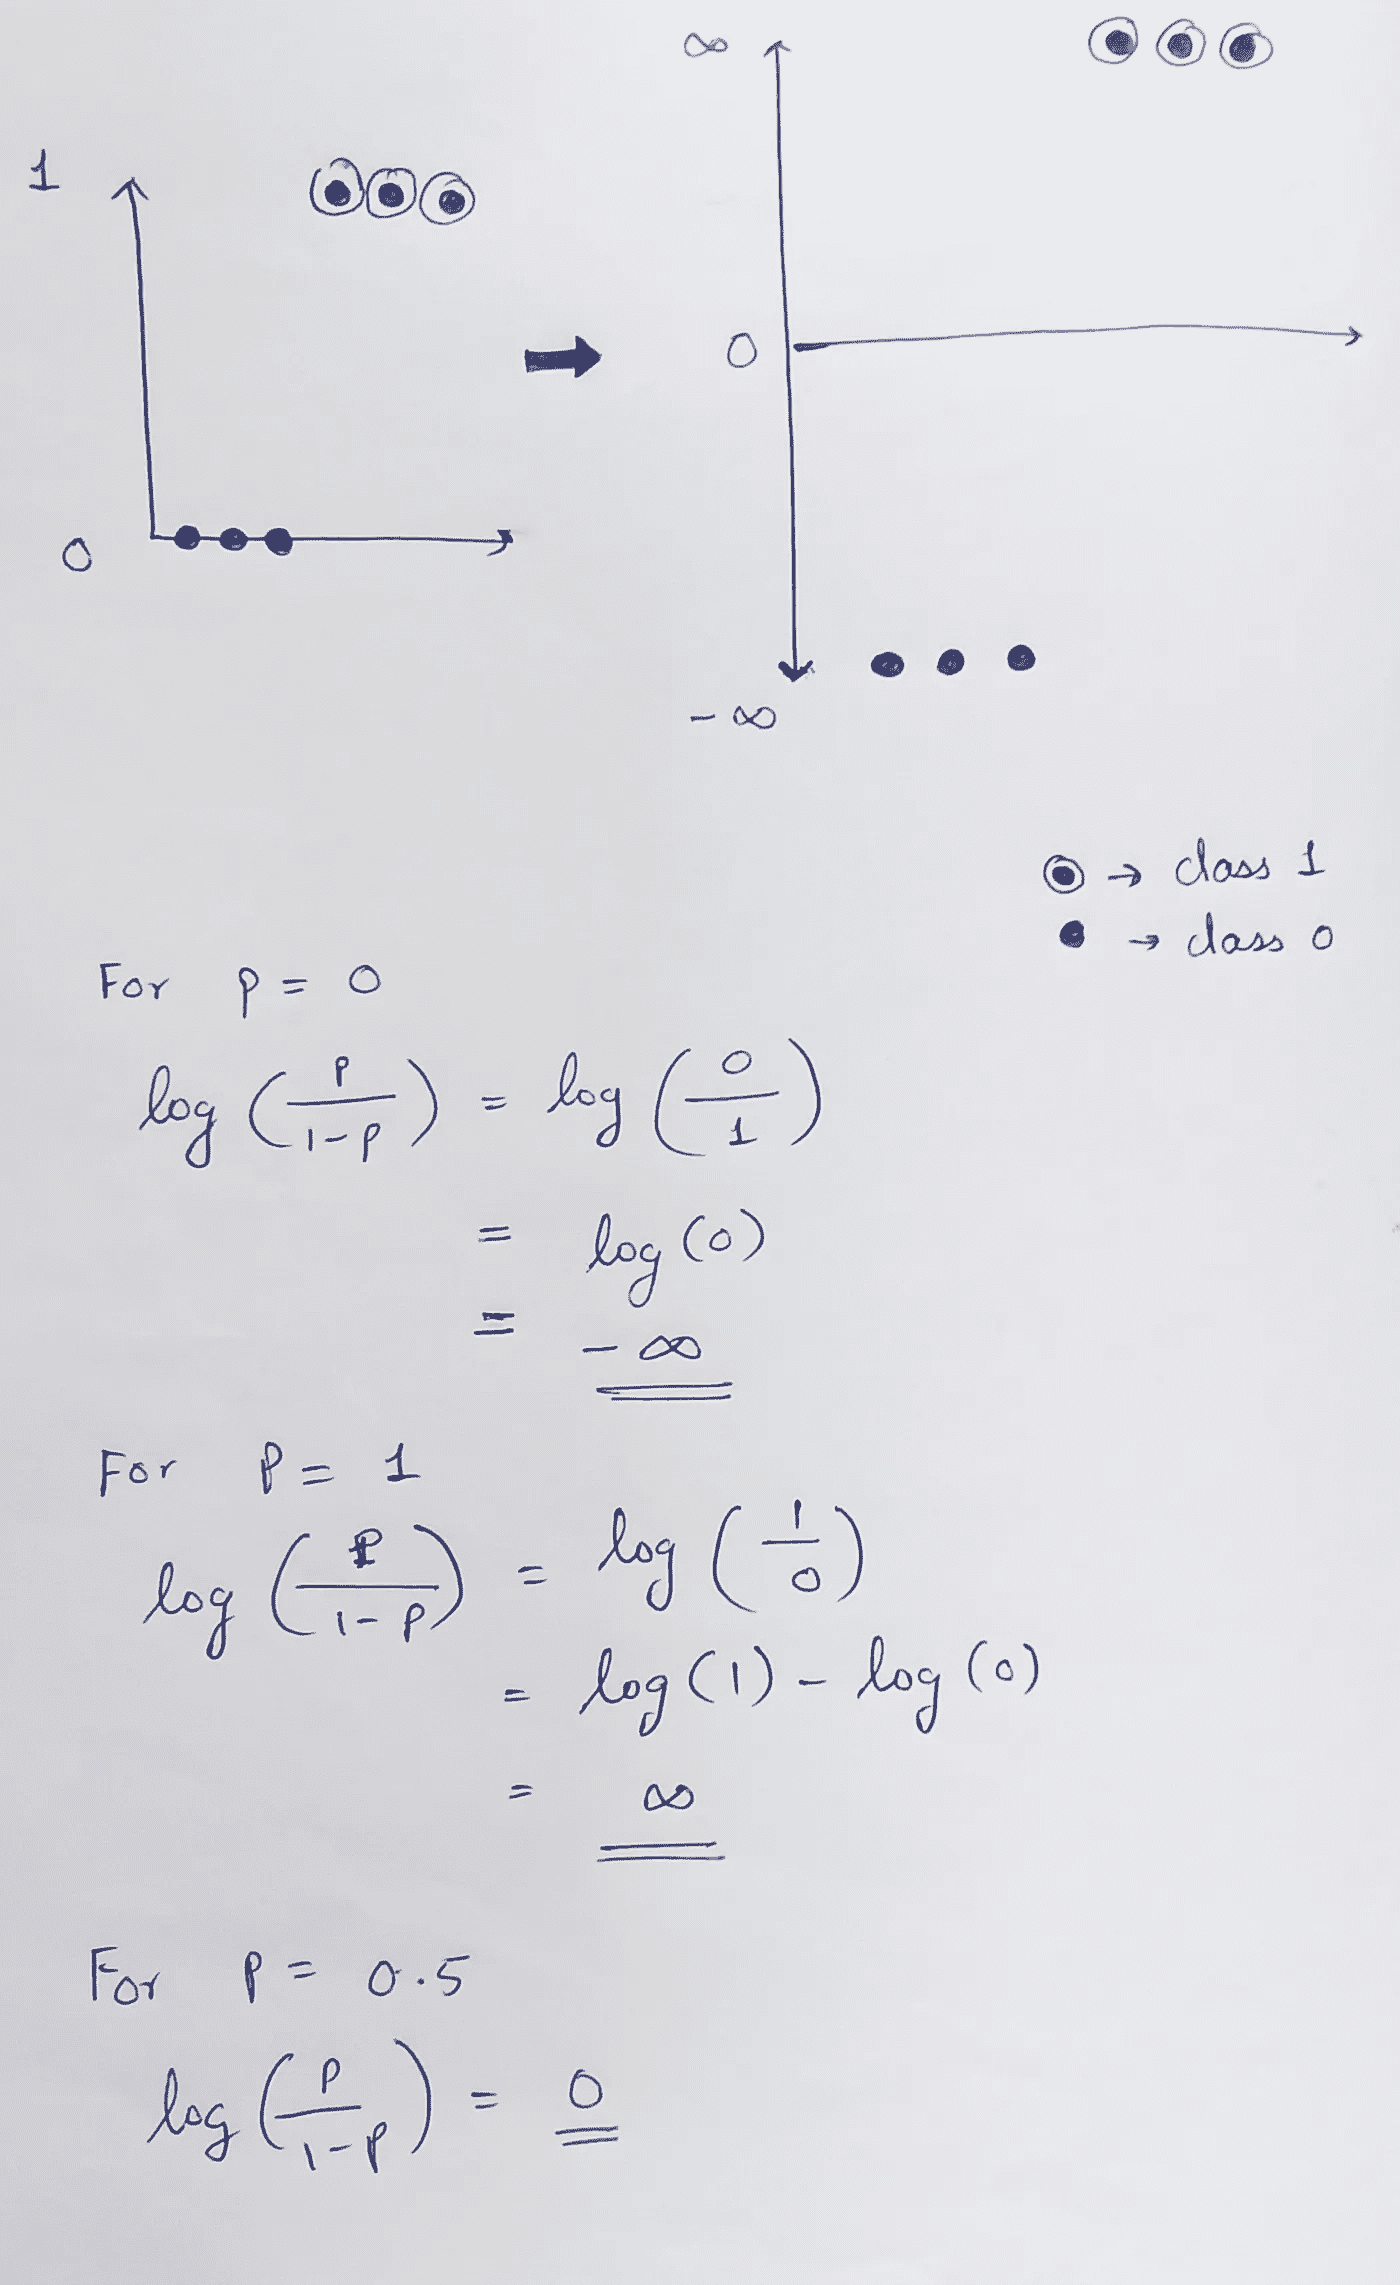 ∞
1
0
0
-∞
→ class 1
→ class 0
For p = 0
log (p/1-p) = log (0/1)
= log (0)
= -∞
For P = 1
log (P/1-P) = log (1/0)
= log (1) - log (0)
= ∞
For P = 0.5
log (P/1-P) = 0